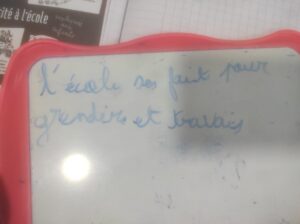 cité à l'école
l'école ses fait pour
grendire et travais